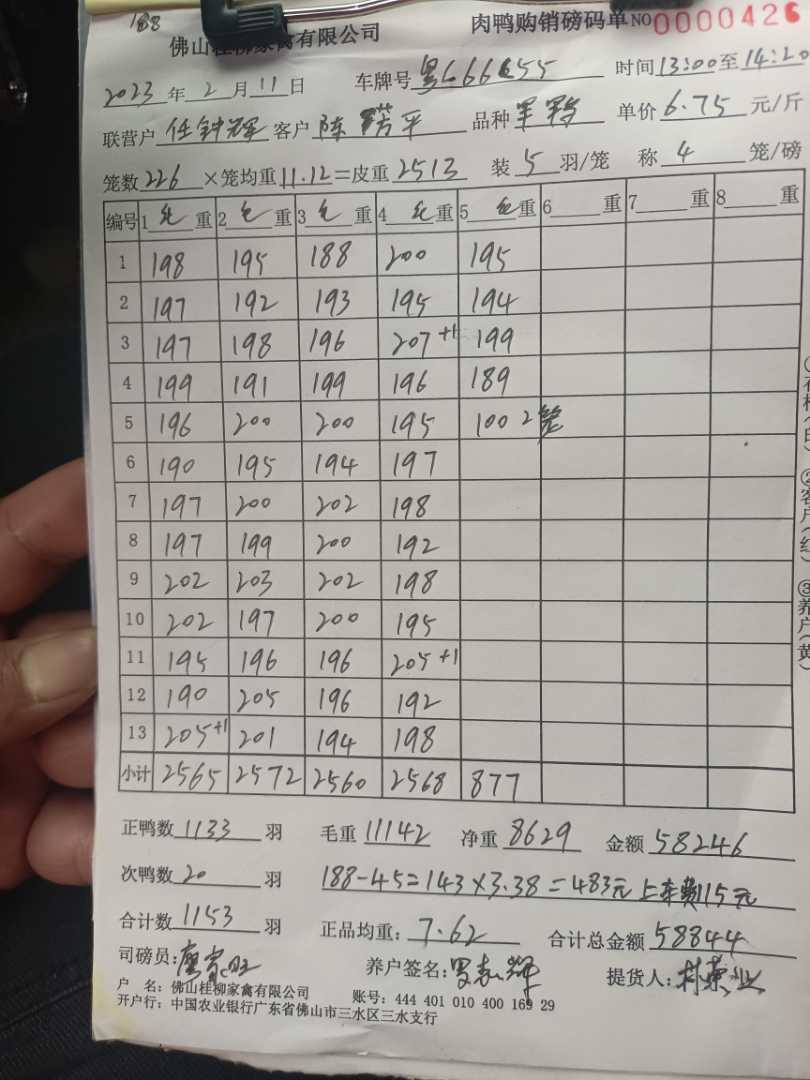 188
佛山桂柳家禽有限公司 肉鸭购销磅码单 NO 0000426
2023年2月11日 车牌号 粤L66655 时间13:00至14:20
联营户 任钟辉 客户 陈 平 品种 单价6.75元/斤
笼数226×笼均重11.12=皮重2513 装5羽/笼 称4笼/磅
编号 1毛重 2毛重 3毛重 4毛重 5毛重 6重 7重 8重
1 198 195 188 200 195
2 197 192 193 195 194
3 197 198 196 207+1 199
4 199 191 199 196 189
5 196 200 200 195 100 2笼
6 190 195 194 197
7 197 200 202 198
8 197 199 200 192
9 202 203 202 198
10 202 197 200 195
11 195 196 196 205+1
12 190 205 196 192
13 205+1 201 194 198
小计 2565 2572 2560 2568 877
正鸭数1133羽 毛重11142 净重8629 金额58246
次鸭数20羽 188-45=143×3.38=483元 上车费115元
合计数1153羽 正品均重:7.62 合计总金额58844
司磅员: 养户签名: 提货人:
户 名:佛山桂柳家禽有限公司 账号:444 401 010 400 169 29
开户行:中国农业银行广东省佛山市三水区三水支行
②客户(红) ③养户(黄)